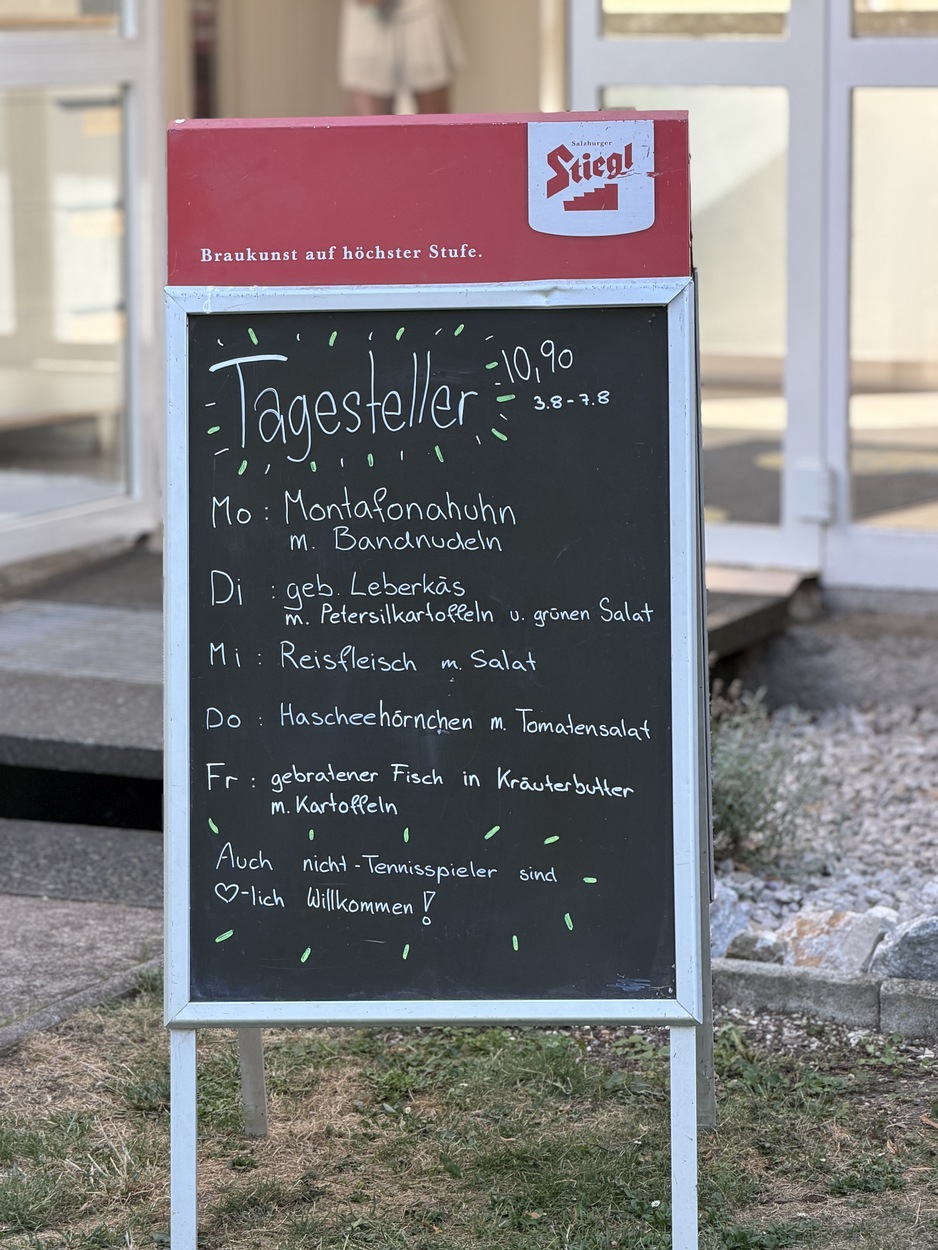 Salzburger
Stiegl
Braukunst auf höchster Stufe.
Tagesteller 10,90
3.8-7.8
Mo : Montafonahuhn
m. Bandnudeln
Di : geb. Leberkäs
m. Petersilkartoffeln u. grünen Salat
Mi : Reisfleisch m. Salat
Do : Hascheehörnchen m. Tomatensalat
Fr : gebratener Fisch in Kräuterbutter
m. Kartoffeln
Auch nicht-Tennisspieler sind
♡-lich Willkommen!